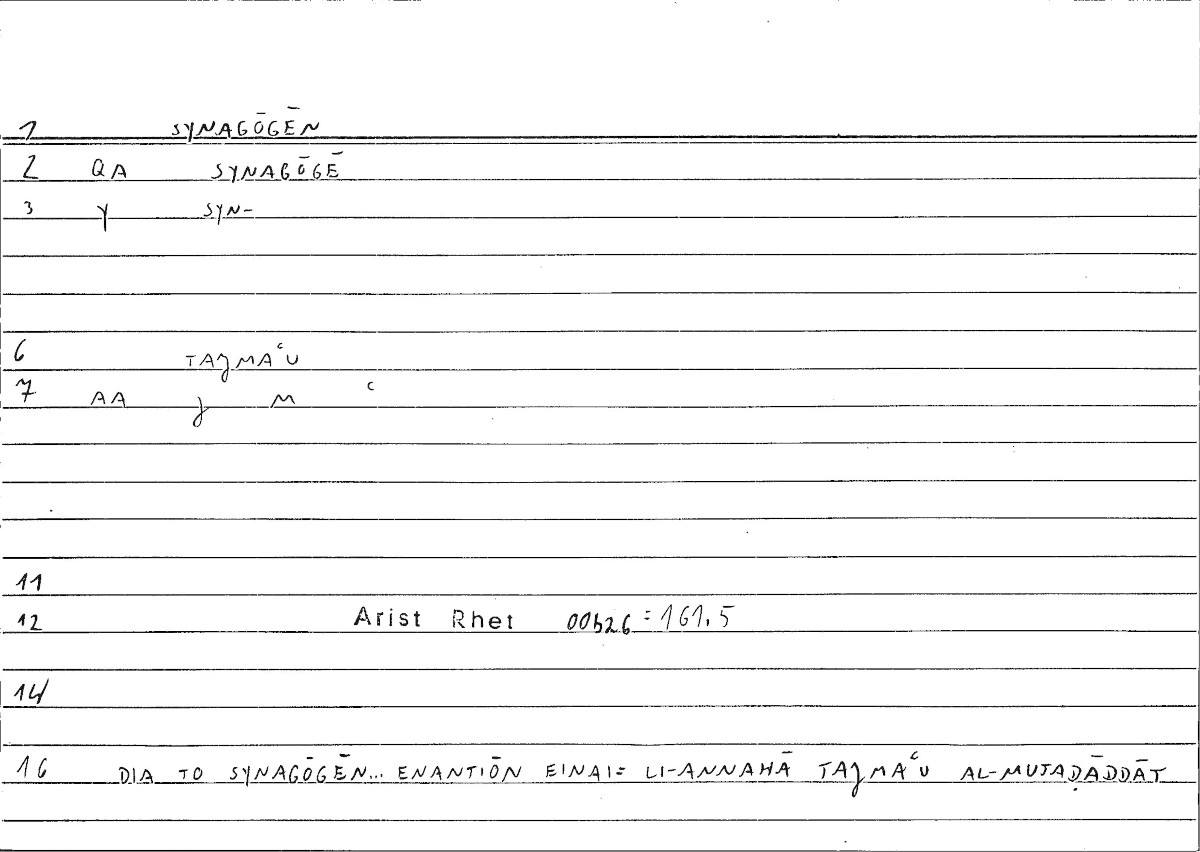 1 SYNAGŌGĒN
2 QA SYNAGŌGĒ
3 Y SYN-
6 TAJMAʿU
7 AA J M ʿ
11
12 Arist Rhet 00b26 = 161,5
14
16 DIA TO SYNAGŌGĒN... ENANTIŌN EINAI= LI-ANNAHĀ TAJMAʿU AL-MUTAḌĀDDĀT